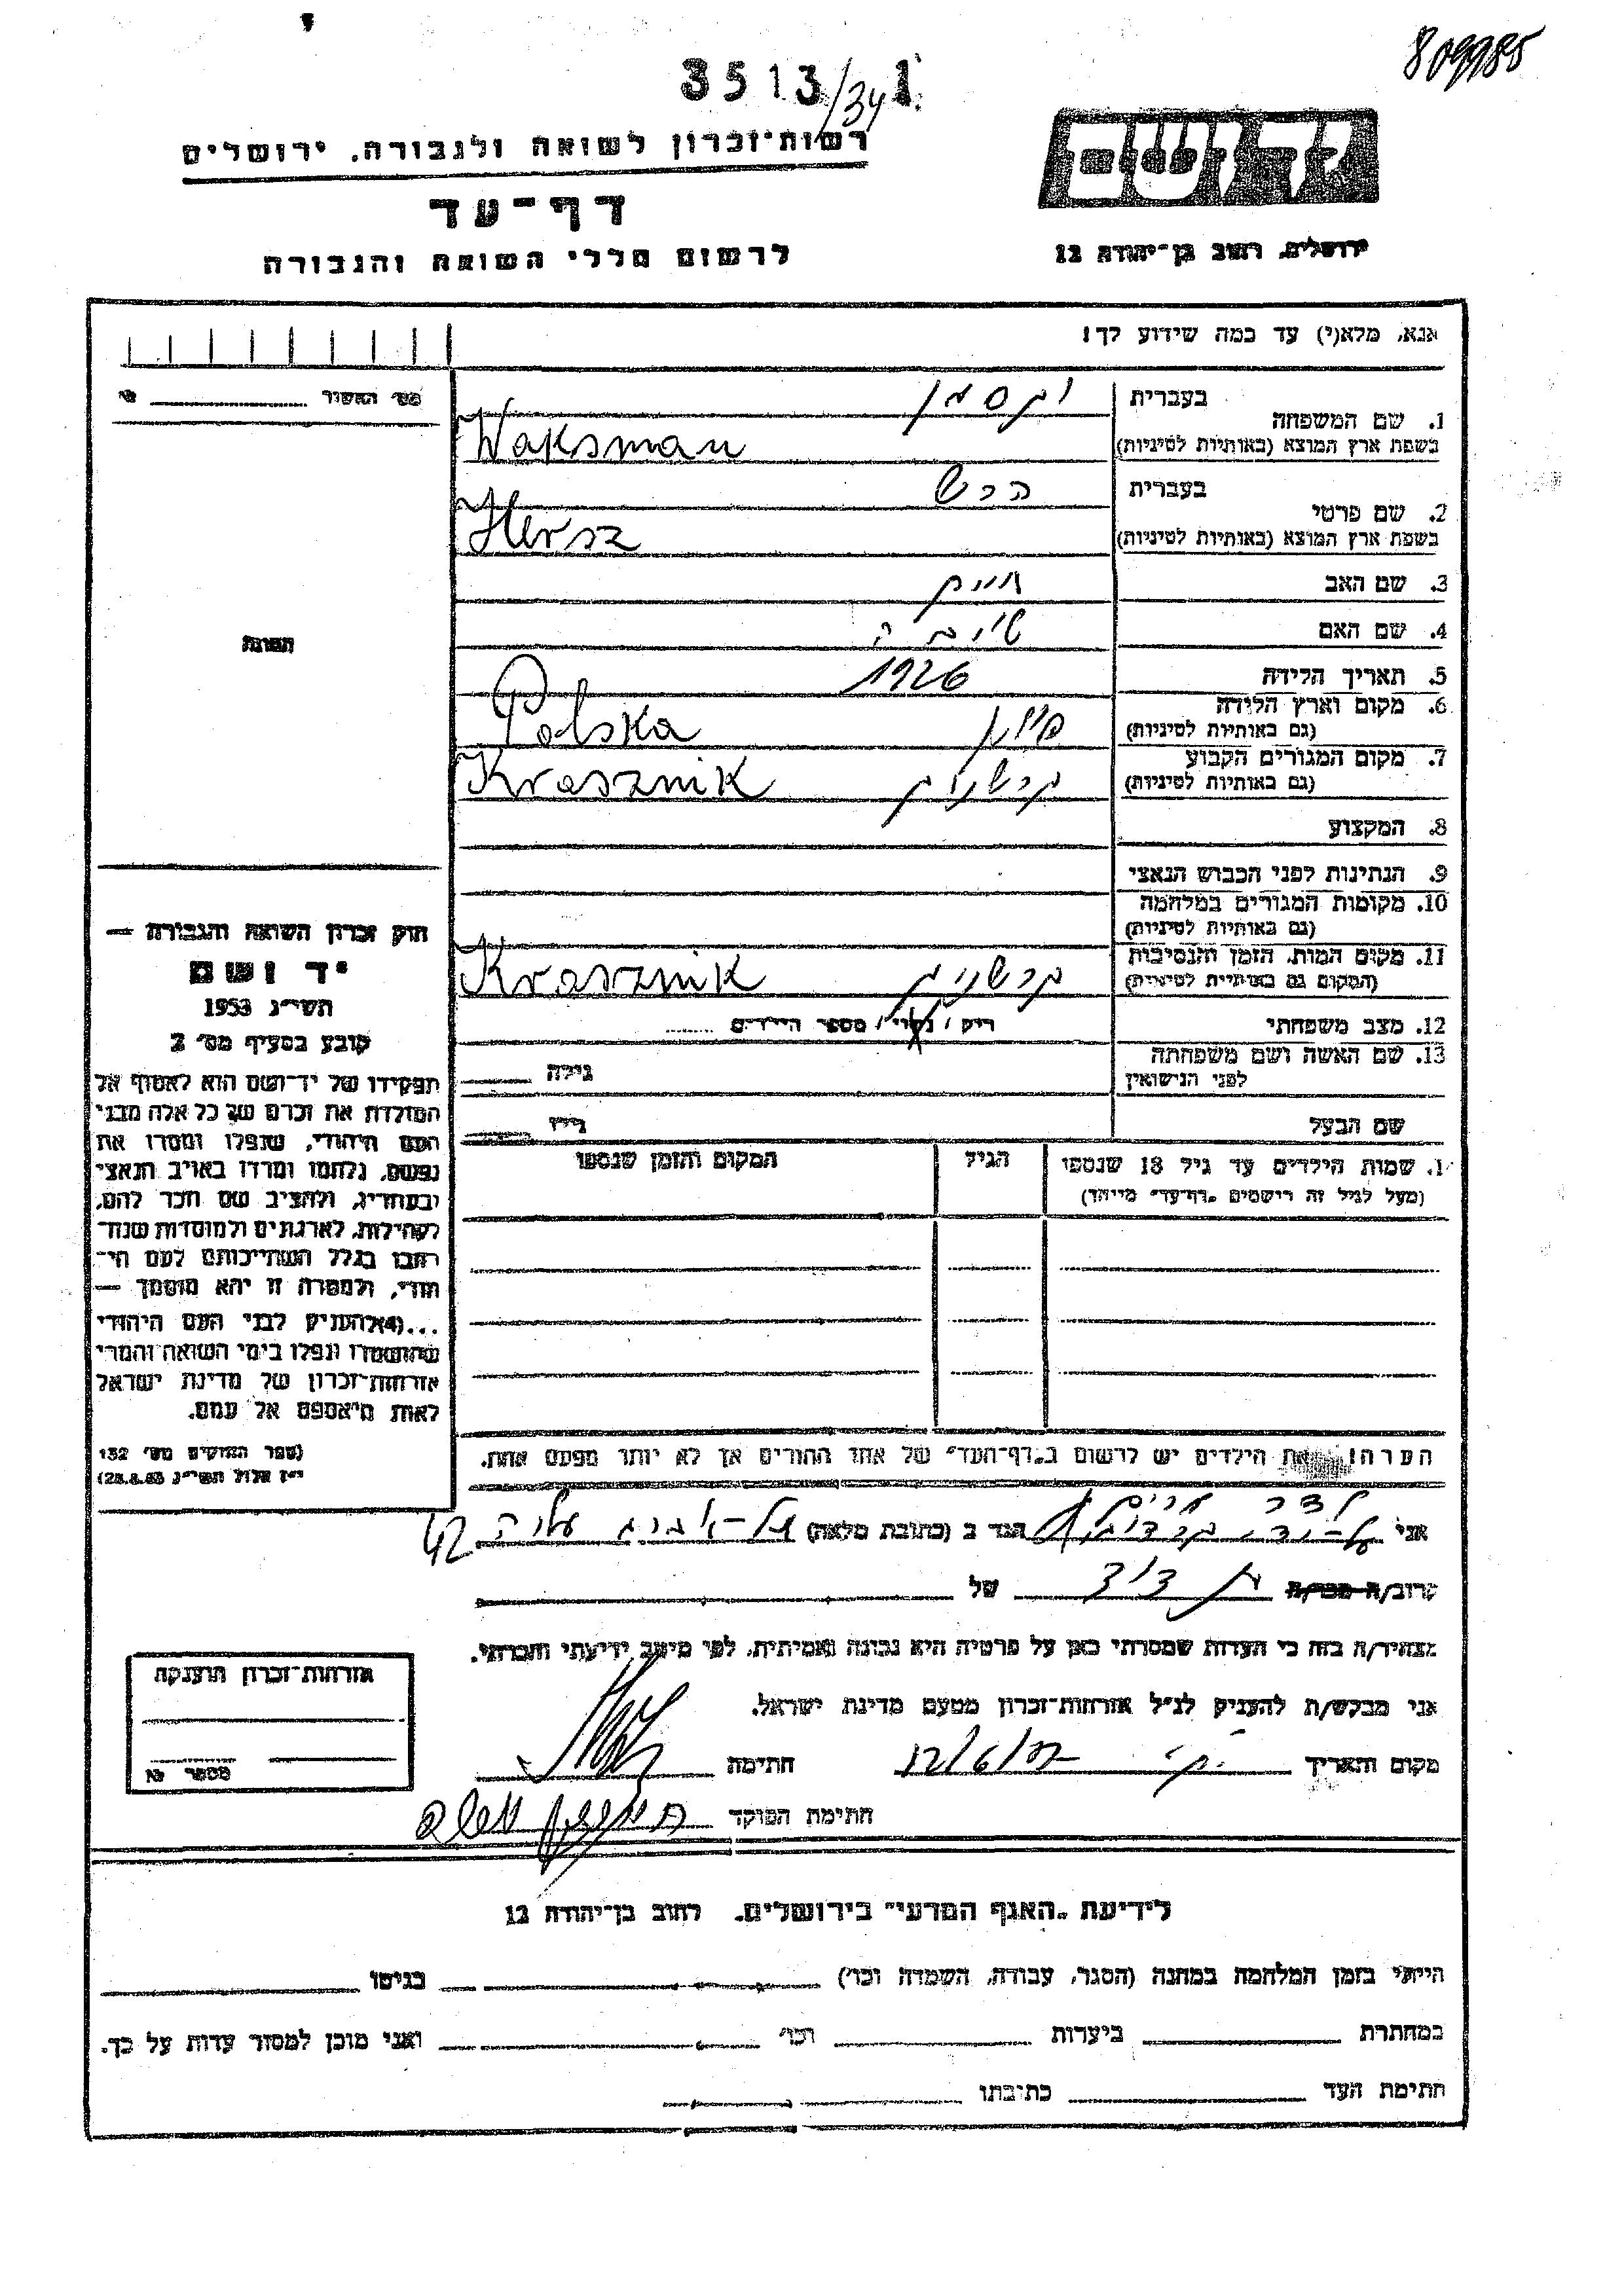 809985
3513/34 1
רשות־זכרון לשואה ולגבורה. ירושלים
יד ושם
דף־עד
לרשום חללי השואה והגבורה
ירושלים, רחוב בן־יהודה 12
אנא, מלא(י) עד כמה שידוע לך!
מס׳ האשור
1. שם המשפחה
בעברית וקסמן
בשפת ארץ המוצא (באותיות לטיניות) Waksman
2. שם פרטי
בעברית הרש
בשפת ארץ המוצא (באותיות לטיניות) Hersz
3. שם האב חיים
4. שם האם
5. תאריך הלידה 1926
6. מקום וארץ הלידה
(גם באותיות לטיניות) פולין Polska
7. מקום המגורים הקבוע
(גם באותיות לטיניות) קרשניק Krasznik
8. המקצוע
9. הנתינות לפני הכבוש הנאצי
10. מקומות המגורים במלחמה
(גם באותיות לטיניות)
11. מקום המות, הזמן והנסיבות
(המקום גם באותיות לטיניות) קרשניק Krasznik
12. מצב משפחתי רוק / נשוי / מספר הילדים
13. שם האשה ושם משפחתה
לפני הנישואין גילה
שם הבעל גילו
התמונה
חוק זכרון השואה והגבורה —
יד ושם
תשי״ג 1953
קובע בסעיף מס׳ 2
תפקידו של יד־ושם הוא לאסוף אל
המולדת את זכרם של כל אלה מבני
העם היהודי, שנפלו ומסרו את
נפשם, נלחמו ומרדו באויב הנאצי
ובעוזריו, ולהציב שם וזכר להם,
לקהילות, לארגונים ולמוסדות שנח־
רבו בגלל השתייכותם לעם הי־
הודי, ולמטרה זו יהא מוסמך —
...(4) להעניק לבני העם היהודי
שהושמדו ונפלו בימי השואה והמרי
אזרחות־זכרון של מדינת ישראל
לאות היאספם אל עמם.
(ספר החוקים מס׳ 132
י״ז אלול תשי״ג 28.8.53)
1. שמות הילדים עד גיל 18 שנספו
(מעל לגיל זה רושמים „דף־עד״ מיוחד)
הגיל
המקום והזמן שנספו
הערה! את הילדים יש לרשום ב„דף־העד״ של אחד ההורים אך לא יותר מפעם אחת.
אני הגר ב (כתובת מלאה) תל-אביב עליה 42
קרוב/ה מכר/ה בן דוד של
מצהיר/ה בזה כי העדות שמסרתי כאן על פרטיה היא נכונה ואמיתית, לפי מיטב ידיעתי והכרתי.
אני מבקש/ת להעניק לנ״ל אזרחות־זכרון מטעם מדינת ישראל.
מקום ותאריך חתימה
חתימת הפוקד
אזרחות־זכרון הוענקה
מספר
לידיעת „האגף המדעי״ בירושלים. רחוב בן־יהודה 12
הייתי בזמן המלחמה במחנה (הסגר, עבודה, השמדה וכו׳) בגיטו
במחתרת ביערות וכו׳ ואני מוכן למסור עדות על כך.
חתימת העד כתיבתו